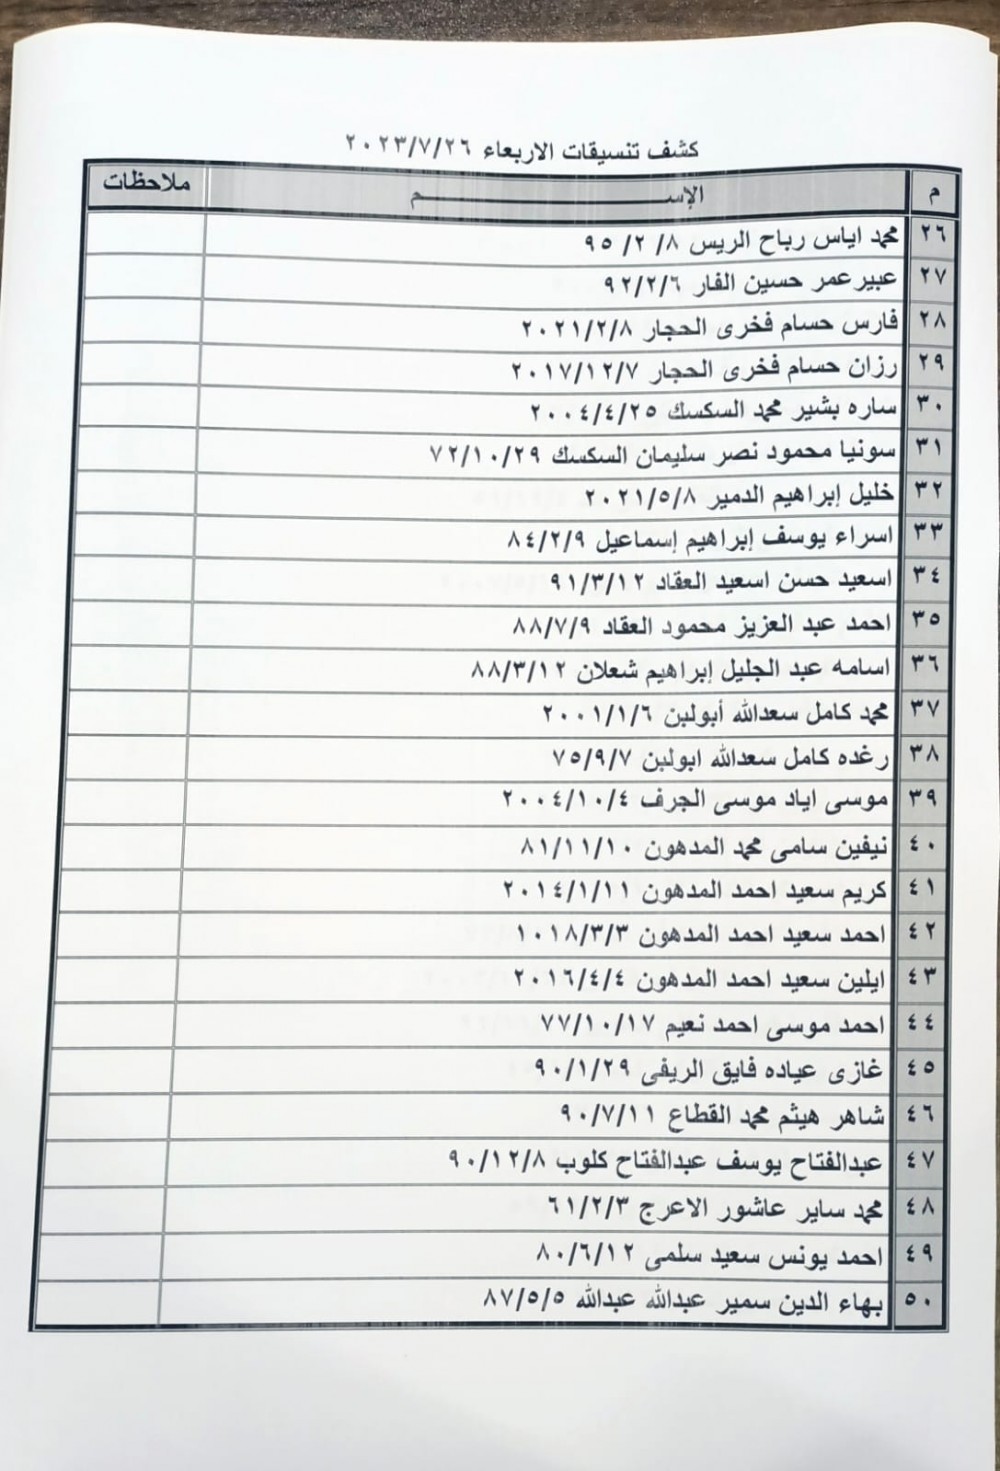 كشف تنسيقات الاربعاء ٢٠٢٣/٧/٢٦
م الإســـــــم ملاحظات
٢٦ محمد اياس رباح الريس ٨/ ٢/ ٩٥
٢٧ عبيرعمر حسين الفار ٩٢/٢/٦
٢٨ فارس حسام فخرى الحجار ٢٠٢١/٢/٨
٢٩ رزان حسام فخرى الحجار ٢٠١٧/١٢/٧
٣٠ ساره بشير محمد السكسك ٢٠٠٤/٤/٢٥
٣١ سونيا محمود نصر سليمان السكسك ٧٢/١٠/٢٩
٣٢ خليل إبراهيم الدمير ٢٠٢١/٥/٨
٣٣ اسراء يوسف إبراهيم إسماعيل ٨٤/٢/٩
٣٤ اسعيد حسن اسعيد العقاد ٩١/٣/١٢
٣٥ احمد عبد العزيز محمود العقاد ٨٨/٧/٩
٣٦ اسامه عبد الجليل إبراهيم شعلان ٨٨/٣/١٢
٣٧ محمد كامل سعدالله أبولبن ٢٠٠١/١/٦
٣٨ رغده كامل سعدالله ابولبن ٧٥/٩/٧
٣٩ موسى اياد موسى الجرف ٢٠٠٤/١٠/٤
٤٠ نيفين سامى محمد المدهون ٨١/١١/١٠
٤١ كريم سعيد احمد المدهون ٢٠١٤/١/١١
٤٢ احمد سعيد احمد المدهون ١٠١٨/٣/٣
٤٣ ايلين سعيد احمد المدهون ٢٠١٦/٤/٤
٤٤ احمد موسى احمد نعيم ٧٧/١٠/١٧
٤٥ غازى عياده فايق الريفى ٩٠/١/٢٩
٤٦ شاهر هيثم محمد القطاع ٩٠/٧/١١
٤٧ عبدالفتاح يوسف عبدالفتاح كلوب ٩٠/١٢/٨
٤٨ محمد ساير عاشور الاعرج ٦١/٢/٣
٤٩ احمد يونس سعيد سلمى ٨٠/٦/١٢
٥٠ بهاء الدين سمير عبدالله عبدالله ٨٧/٥/٥